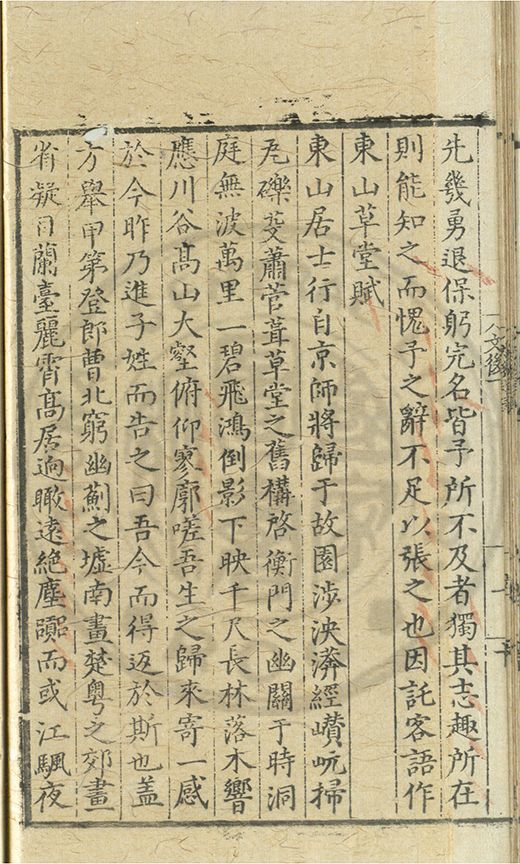 先幾勇退保躬完名皆予所不及者獨其志趣所在
則能知之而愧子之辭不足以張之也因託客語作
東山草堂賦
東山居士行自京師將歸于故園涉泱漭經巑岏掃
瓦礫芟蕭菅葺草堂之舊構啓衡門之幽關于時洞
庭無波萬里一碧飛鴻倒影下映千尺長林落木響
應川谷高山大壑俯仰寥廓嗟吾生之歸來寄一感
於今昨乃進子姓而告之曰吾今而得返於斯也盖
方舉甲第登郎曹北窮幽薊之墟南畫楚粤之郊畫
省凝目蘭臺麗霄高居逈瞰遠絶塵囂而或江颿夜